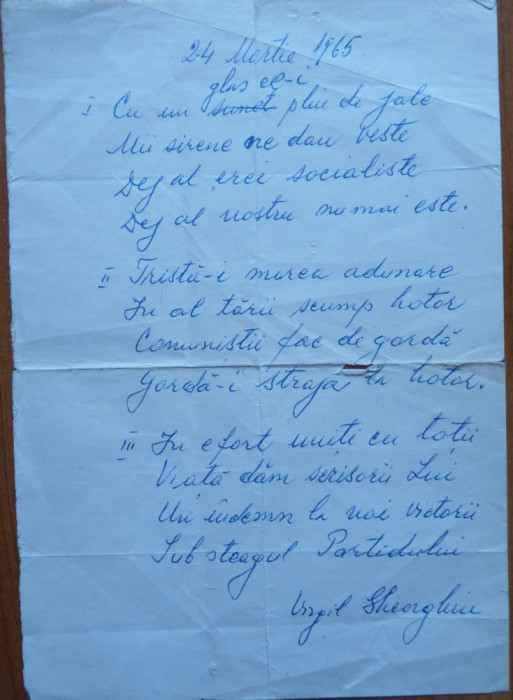 24 Martie 1965.
glas ce-i
I Cu un sunet plin de jale
Mii sirene ne dau veste
Dej al erei socialiste
Dej al nostru nu mai este.
II Tristă-i marea adunare
In al tării scump hotor
Comuniștii fac de gardă
Gardă-i straja la hotor.
III In efort uniți cu toții
Viață dăm scrisorii Lui
Un îndemn la noi victorii
Sub steagul Partidului
Virgil Gheorghiu